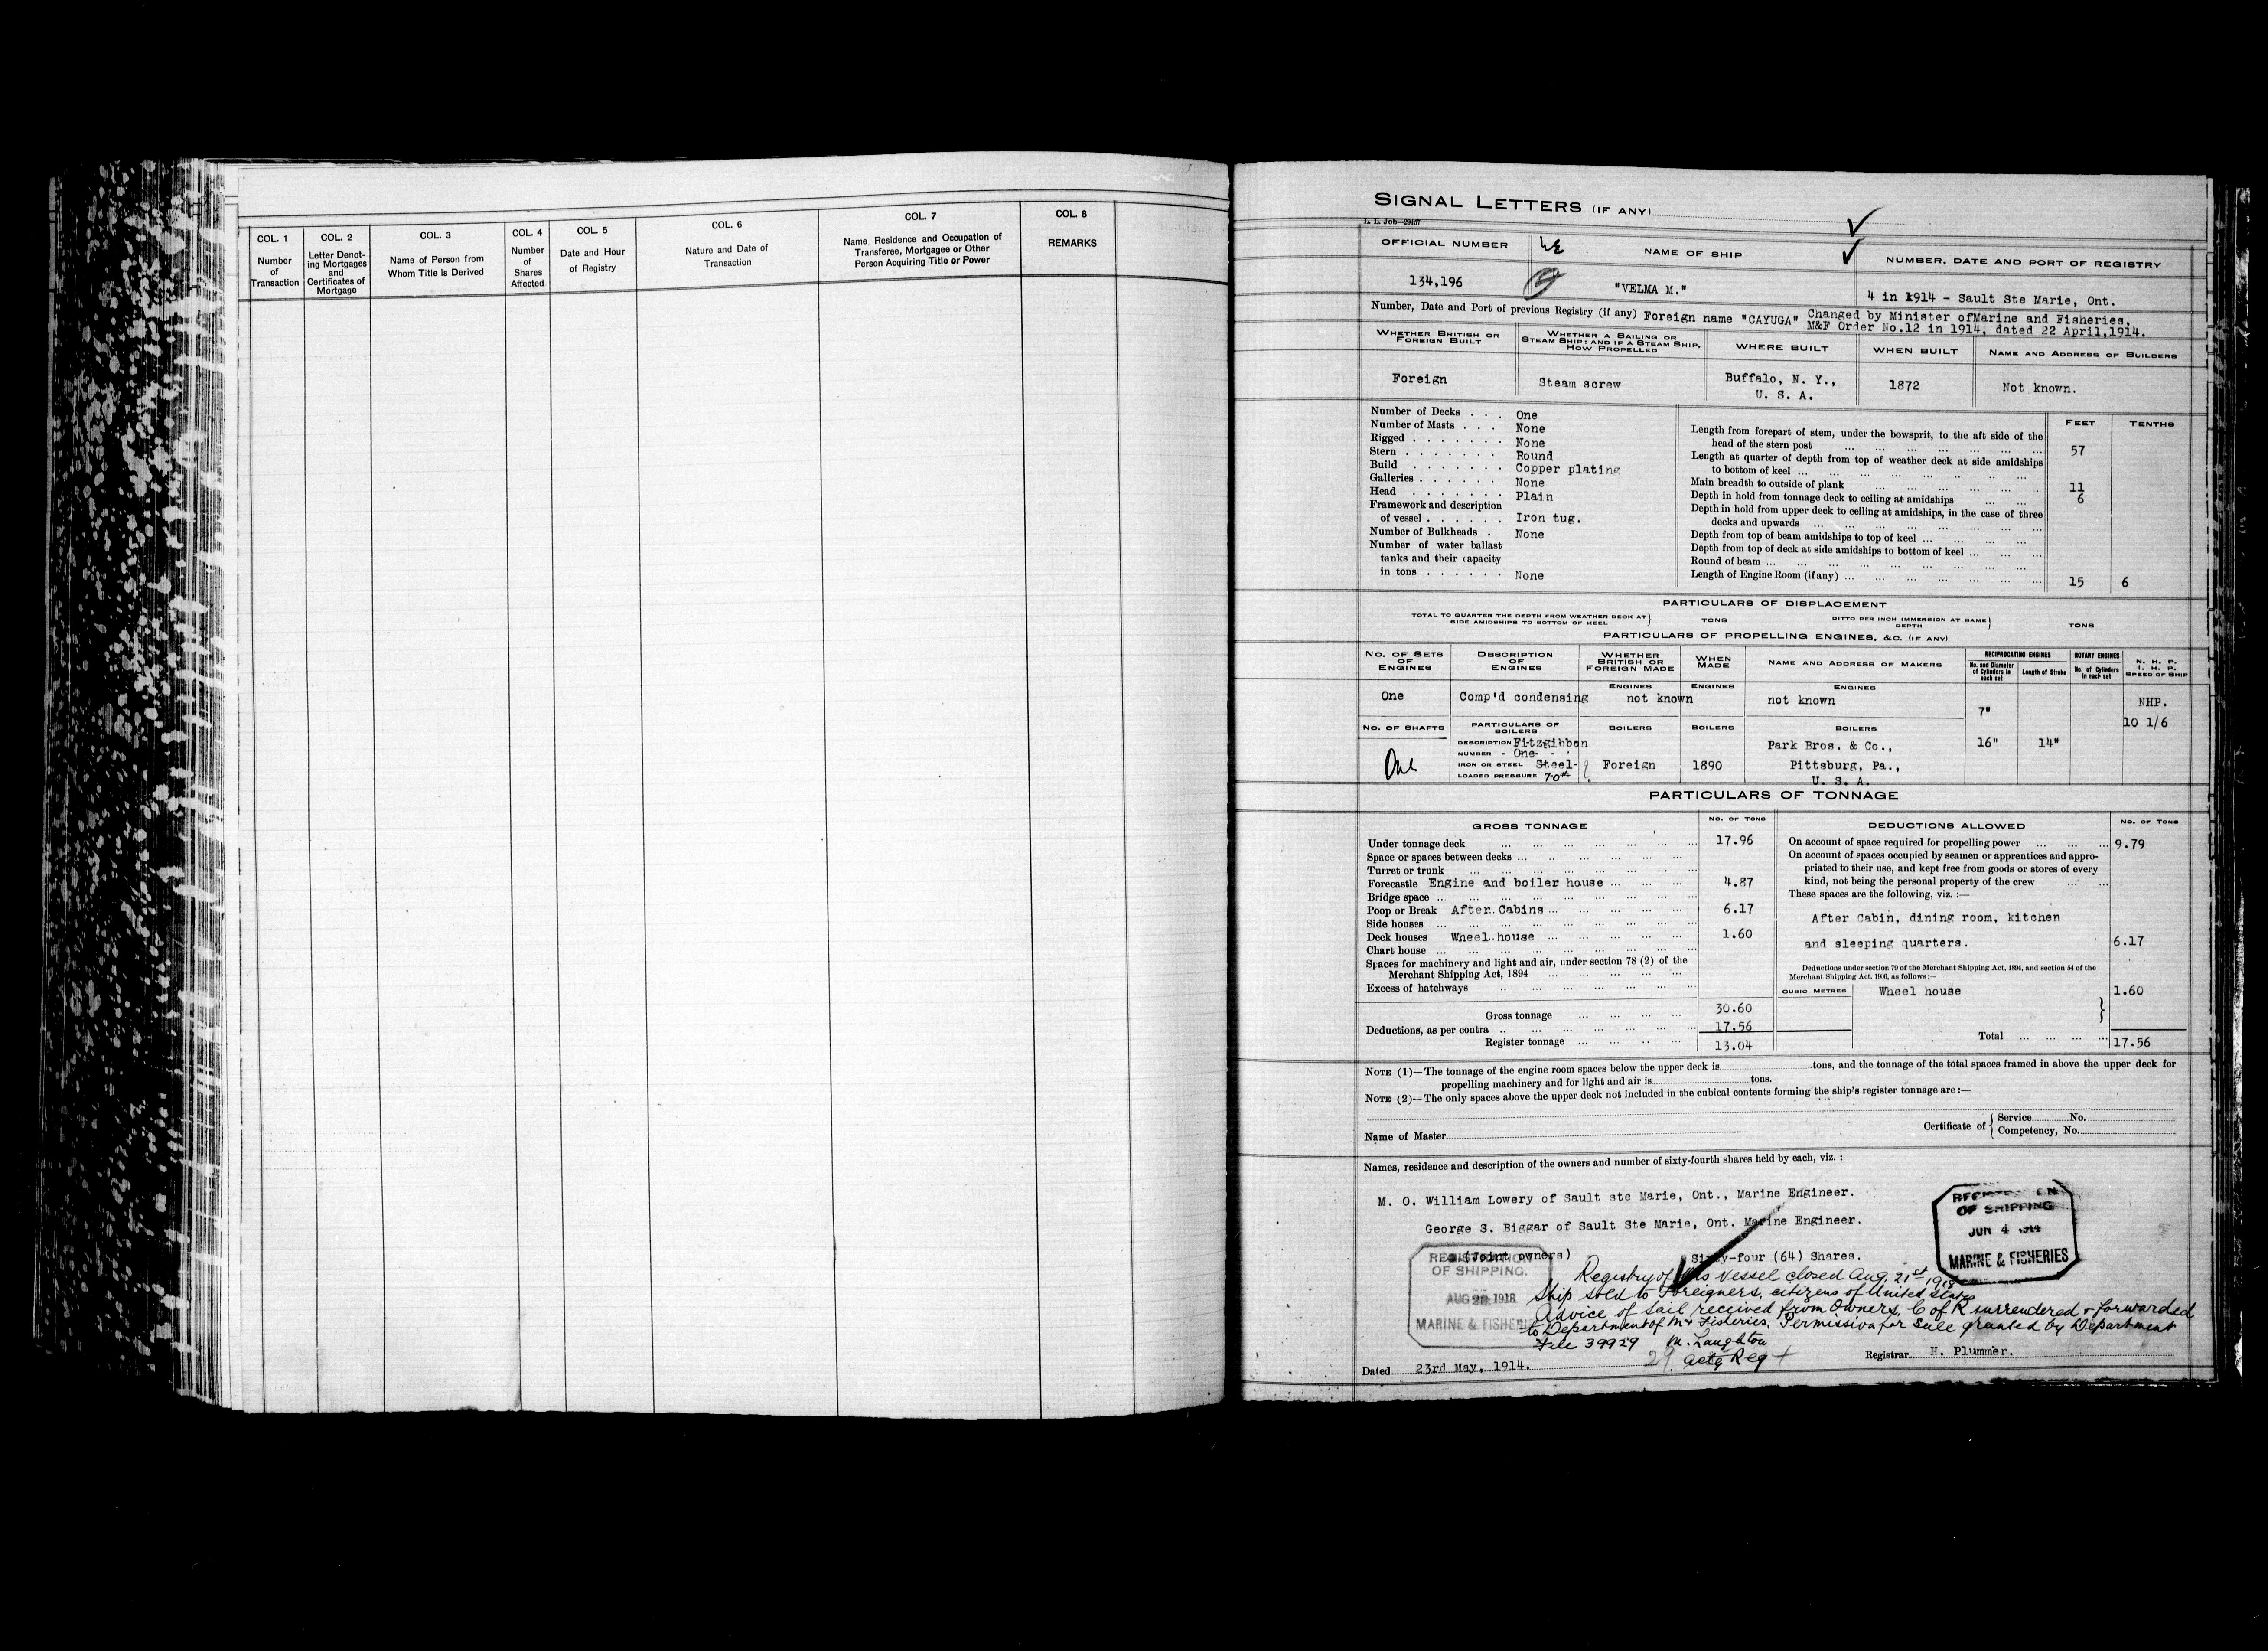 COL. 1
Number
of
Transaction
COL. 2
Letter Denot-
ing Mortgages
and
Certificates of
Mortgage
COL. 3
Name of Person from
Whom Title is Derived
COL. 4
Number
of
Shares
Affected
COL. 5
Date and Hour
of Registry
COL. 6
Nature and Date of
Transaction
COL. 7
Name, Residence and Occupation of
Transferee, Mortgagee or Other
Person Acquiring Title or Power
COL. 8
REMARKS
SIGNAL LETTERS (IF ANY)
L. L. Job—29457
OFFICIAL NUMBER
NAME OF SHIP
NUMBER, DATE AND PORT OF REGISTRY
134,196
"VELMA M."
4 in 1914 - Sault Ste Marie, Ont.
Number, Date and Port of previous Registry (if any) Foreign name "CAYUGA" Changed by Minister ofMarine and Fisheries,
M&F Order No.12 in 1914, dated 22 April,1914.
WHETHER BRITISH OR
FOREIGN BUILT
WHETHER A SAILING OR
STEAM SHIP: AND IF A STEAM SHIP,
HOW PROPELLED
WHERE BUILT
WHEN BUILT
NAME AND ADDRESS OF BUILDERS
Foreign
Steam screw
Buffalo, N. Y.,
U. S. A.
1872
Not known.
Number of Decks . . . One
Number of Masts . . . None
Rigged . . . . . . . None
Stern . . . . . . . Round
Build . . . . . . . Copper plating
Galleries . . . . . . None
Head . . . . . . . Plain
Framework and description
of vessel . . . . . . Iron tug.
Number of Bulkheads . None
Number of water ballast
tanks and their capacity
in tons . . . . . . None
FEET TENTHS
Length from forepart of stem, under the bowsprit, to the aft side of the
head of the stern post 57
Length at quarter of depth from top of weather deck at side amidships
to bottom of keel
Main breadth to outside of plank 11
Depth in hold from tonnage deck to ceiling at amidships 6
Depth in hold from upper deck to ceiling at amidships, in the case of three
decks and upwards
Depth from top of beam amidships to top of keel
Depth from top of deck at side amidships to bottom of keel
Round of beam
Length of Engine Room (if any) 15 6
PARTICULARS OF DISPLACEMENT
TOTAL TO QUARTER THE DEPTH FROM WEATHER DECK AT
SIDE AMIDSHIPS TO BOTTOM OF KEEL
TONS
DITTO PER INCH IMMERSION AT SAME
DEPTH
TONS
PARTICULARS OF PROPELLING ENGINES, &C. (IF ANY)
NO. OF SETS
OF
ENGINES
DESCRIPTION
OF
ENGINES
WHETHER
BRITISH OR
FOREIGN MADE
WHEN
MADE
NAME AND ADDRESS OF MAKERS
RECIPROCATING ENGINES
No. and Diameter
of Cylinders in
each set
Length of Stroke
ROTARY ENGINES
No. of Cylinders
in each set
N. H. P.
I. H. P.
SPEED OF SHIP
ENGINES
ENGINES
ENGINES
One
Comp'd condensing
not known
not known
7"
NHP.
10 1/6
NO. OF SHAFTS
PARTICULARS OF
BOILERS
BOILERS
BOILERS
BOILERS
One
DESCRIPTION Fitzgibbon
NUMBER - One-
IRON OR STEEL Steel-
LOADED PRESSURE 70#
Foreign
1890
Park Bros. & Co.,
Pittsburg, Pa.,
U. S. A.
16"
14"
PARTICULARS OF TONNAGE
GROSS TONNAGE
NO. OF TONS
Under tonnage deck 17.96
Space or spaces between decks
Turret or trunk
Forecastle Engine and boiler house 4.87
Bridge space
Poop or Break After Cabins 6.17
Side houses
Deck houses Wheel house 1.60
Chart house
Spaces for machinery and light and air, under section 78 (2) of the
Merchant Shipping Act, 1894
Excess of hatchways
Gross tonnage 30.60
Deductions, as per contra 17.56
Register tonnage 13.04
DEDUCTIONS ALLOWED
NO. OF TONS
On account of space required for propelling power 9.79
On account of spaces occupied by seamen or apprentices and appro-
priated to their use, and kept free from goods or stores of every
kind, not being the personal property of the crew
These spaces are the following, viz. :—
After Cabin, dining room, kitchen
and sleeping quarters. 6.17
Deductions under section 79 of the Merchant Shipping Act, 1894, and section 54 of the
Merchant Shipping Act, 1906, as follows :—
CUBIC METRES
Wheel house 1.60
Total 17.56
NOTE (1)—The tonnage of the engine room spaces below the upper deck is tons, and the tonnage of the total spaces framed in above the upper deck for
propelling machinery and for light and air is tons.
NOTE (2)—The only spaces above the upper deck not included in the cubical contents forming the ship's register tonnage are :—
Name of Master
Certificate of
Service No.
Competency, No.
Names, residence and description of the owners and number of sixty-fourth shares held by each, viz. :
M. O. William Lowery of Sault ste Marie, Ont., Marine Engineer.
George S. Biggar of Sault Ste Marie, Ont. Marine Engineer.
(Joint owners) Sixty-four (64) Shares.
OF SHIPPING
JUN 4 1914
MARINE & FISHERIES
REGISTRATION
OF SHIPPING.
AUG 29 1918
MARINE & FISHERIES
Registry of this vessel closed Aug. 21st 1918
Ship sold to Foreigners, citizens of United States
Advice of Sail received from Owners, C of R surrendered & forwarded
to Department of M & Fisheries, Permission for Sale granted by Department
File 39929 M. Laughton
29 Actg Reg
Dated 23rd May, 1914.
Registrar H. Plummer.